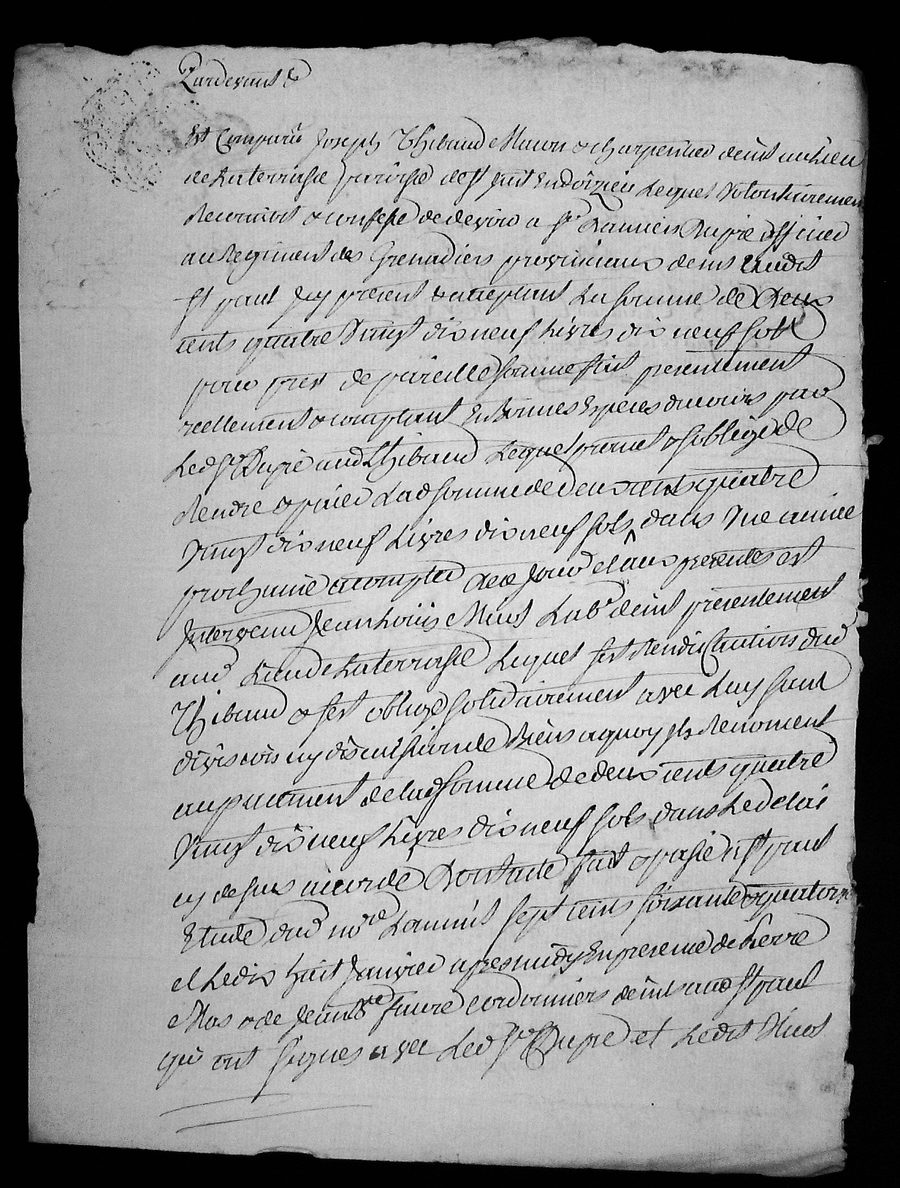 Pardevant &
Est Comparu Joseph Thibaud Masson & charpentier demt au lieu
de Laterrasse parroisse de st paul Endoizieu Lequel Volontairement
Reconnoit & confesse de devoir a Sr Damien Dupré officier
au Regiment des Grenadiers provinciaux demt audit
St paul Icy present & acceptant La somme de Deux
cents quatre Vingt dix neuf Livres dix neuf sols
pour prest de pareille somme fait presentement
reellement & comptant En bonnes Especes du cours par
Led Sr Dupré aud Thibaud Lequel promet & soblige de
Rendre & paier Lad somme de deux cents quatre
Vingt dix neuf Livres dix neuf sols dans Une année
prochaine a compter de ce Jour et aux presentes est
Intervenu Jean Louis Mas Labr demt presentement
aud Lieu de Laterrasse Lequel sest Rendu Caution dud
Thibaud & sest obligé solidairement avec Luy sans
division ny discussion de biens a quoy ils Renoncent
au paiement de lad somme de deux cents quatre
Vingt dix neuf Livres dix neuf sols dans Le delai
cy dessus accordé Dont acte fait & passé a st paul
Etude dud nore Lan mil sept cents soixante & quatorze
et Le dix huit Janvier apres midy En presence de pierre
Mas & de Jean Bte favre cordonniers demt aud St paul
qui ont signés avec Led Sr Dupré et Ledit Mas